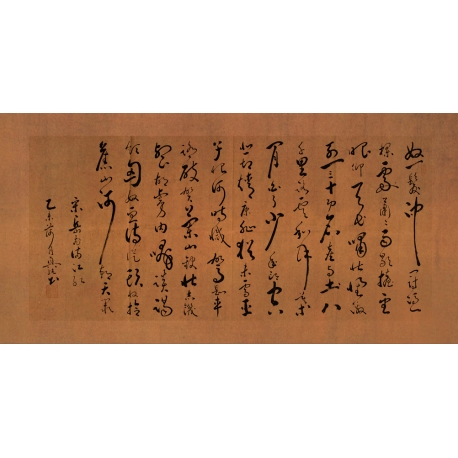 怒髮沖冠憑
欄處瀟瀟雨歇抬望
眼仰天長嘯壯懷激
烈三十功名塵與土八
千里路雲和月莫
等閒白了少年頭空
悲切靖康恥猶未雪臣
子恨何時滅駕長車
踏破賀蘭山缺壯志飢
餐胡虜肉笑談渴
飲匈奴血待從頭收拾
舊山河朝天闕
宋岳飛滿江紅
乙未荷月書